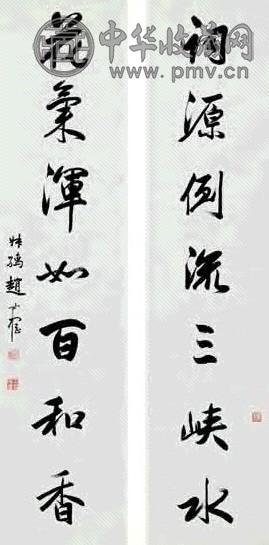 中华收藏网
www.pmv.cn
詞源倒流三峽水
花氣渾如百和香
叔孺趙時棡